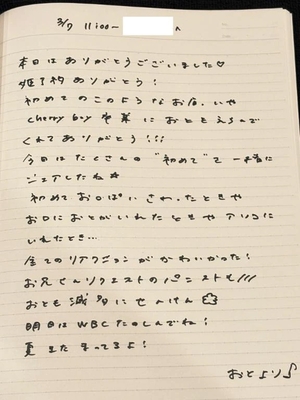 3/7 11:00~ へ
本日はありがとうございました♡
ありがとう!
初めてのこのようなお店、いや
cherry boy 卒業におともえらんで
くれてありがとう!!!
今日はたくさんの"初めて"を一緒に
シェアしたね☆
初めておっぱいさわったときや
お口におとがいれたときやアソコに
いれたとき…
全てのリアクションがかわいかった!
お兄さんリクエストのパンストも///
おとも滅多にせんけん
明日はWBCたのしんでね!
夏またまってるよ!
おとより♪